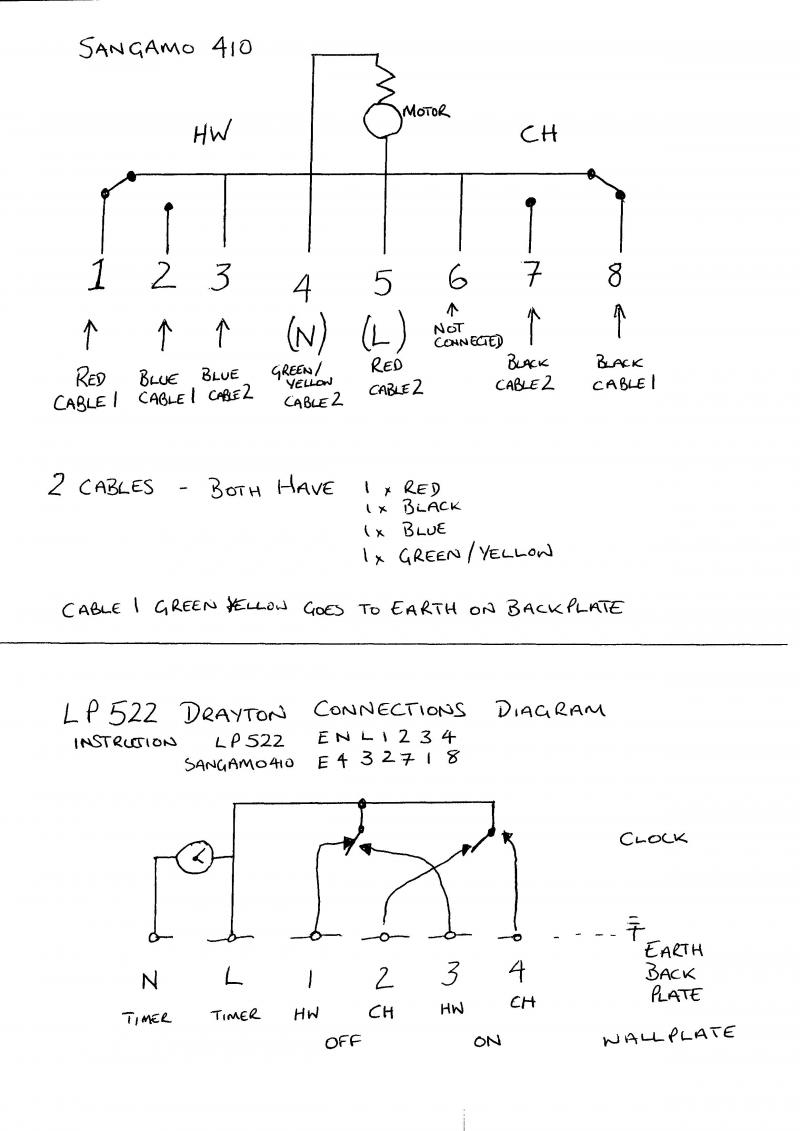 SANGAMO 410
MOTOR
HW
CH
1 2 3 4 5 6 7 8
(N) (L)
NOT
CONNECTED
RED
CABLE 1
BLUE
CABLE 1
BLUE
CABLE 2
GREEN/
YELLOW
CABLE 2
RED
CABLE 2
BLACK
CABLE 2
BLACK
CABLE 1
2 CABLES - BOTH HAVE 1 x RED
1 x BLACK
1 x BLUE
1 x GREEN/YELLOW
CABLE 1 GREEN YELLOW GOES TO EARTH ON BACKPLATE
LP522 DRAYTON CONNECTIONS DIAGRAM
INSTRUCTION LP522 E N L 1 2 3 4
SANGAMO 410 E 4 3 2 7 1 8
CLOCK
N L 1 2 3 4
TIMER TIMER HW CH HW CH
EARTH
BACK
PLATE
OFF ON WALLPLATE